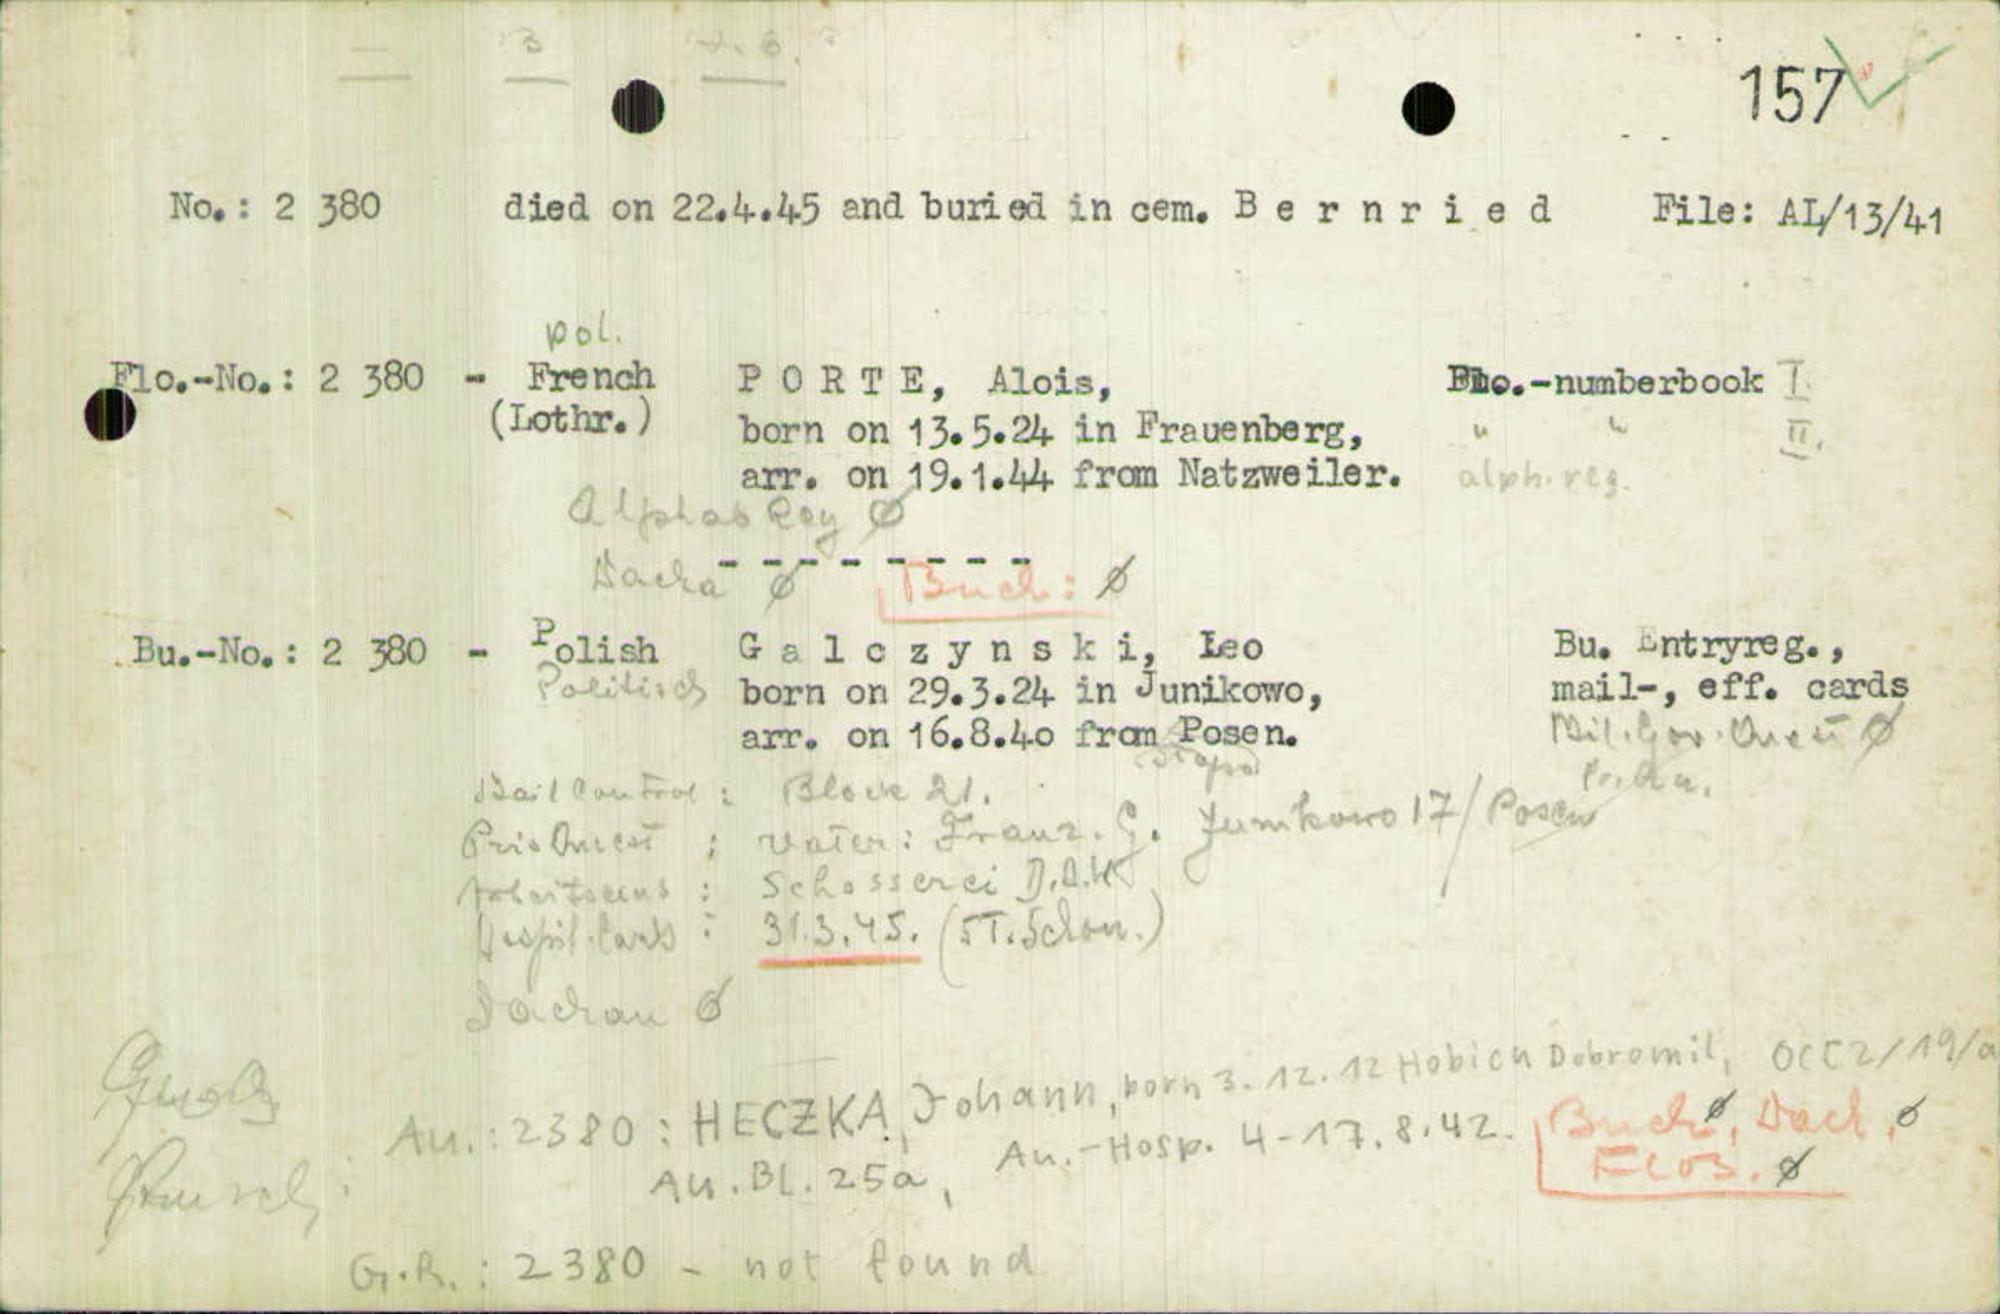 157
No.: 2 380 died on 22.4.45 and buried in cem. B e r n r i e d File: AL/13/41
pol.
Flo.-No.: 2 380 - French P O R T E, Alois, Flo.-numberbook I.
(Lothr.) born on 13.5.24 in Frauenberg, " " II.
arr. on 19.1.44 from Natzweiler. alph. reg.
Ø
- - - - - - - -
Dacha Ø Buch: Ø
Bu.-No.: 2 380 - Polish G a l c z y n s k i, Leo Bu. Entryreg.,
Politisch born on 29.3.24 in Junikowo, mail-, eff. cards
arr. on 16.8.40 from Posen. Mil. Gov. Quest Ø
Stapo
Mail Control : Block 21.
Pris Quest : Vater: Franz. G. Junikowo 17/Posen
: Schosserei D.A.W
Hospit. Cards : 31.3.45. (ST. Schon.)
Dachau Ø
Au.: 2380 : HECZKA, Johann, born 3.12.12 Hobich Dobromil, OCC2/19/a
Au. Bl. 25a, Au.-Hosp. 4-17.8.42. Buch Ø, Dach. Ø
Flos. Ø
G.R. : 2380 - not found